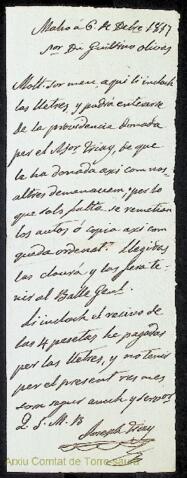 Mahó á 6. de Dbre 1817
Sor Dn Guillmo Olives
Molt sor meu aqui li incloch
las lletres, y podrá enterarse
de la providencia donada
per el Asor Triay, be que
le ha donada axi com nos-
altres demanavem; per lo
que sols falta se remetian
los autos ó copia axi com
queda ordenat. Llegidas
las clourá y las fera te-
nir al Balle Genl.
Li incloch el recivo de
las 4 pesetas he pagadas
per las lletras, y no tenir
per el present res mes
com segur amich y servor
Q. S. M. B.
Joseph Triay
Arxiu Comtat de Torre-saura